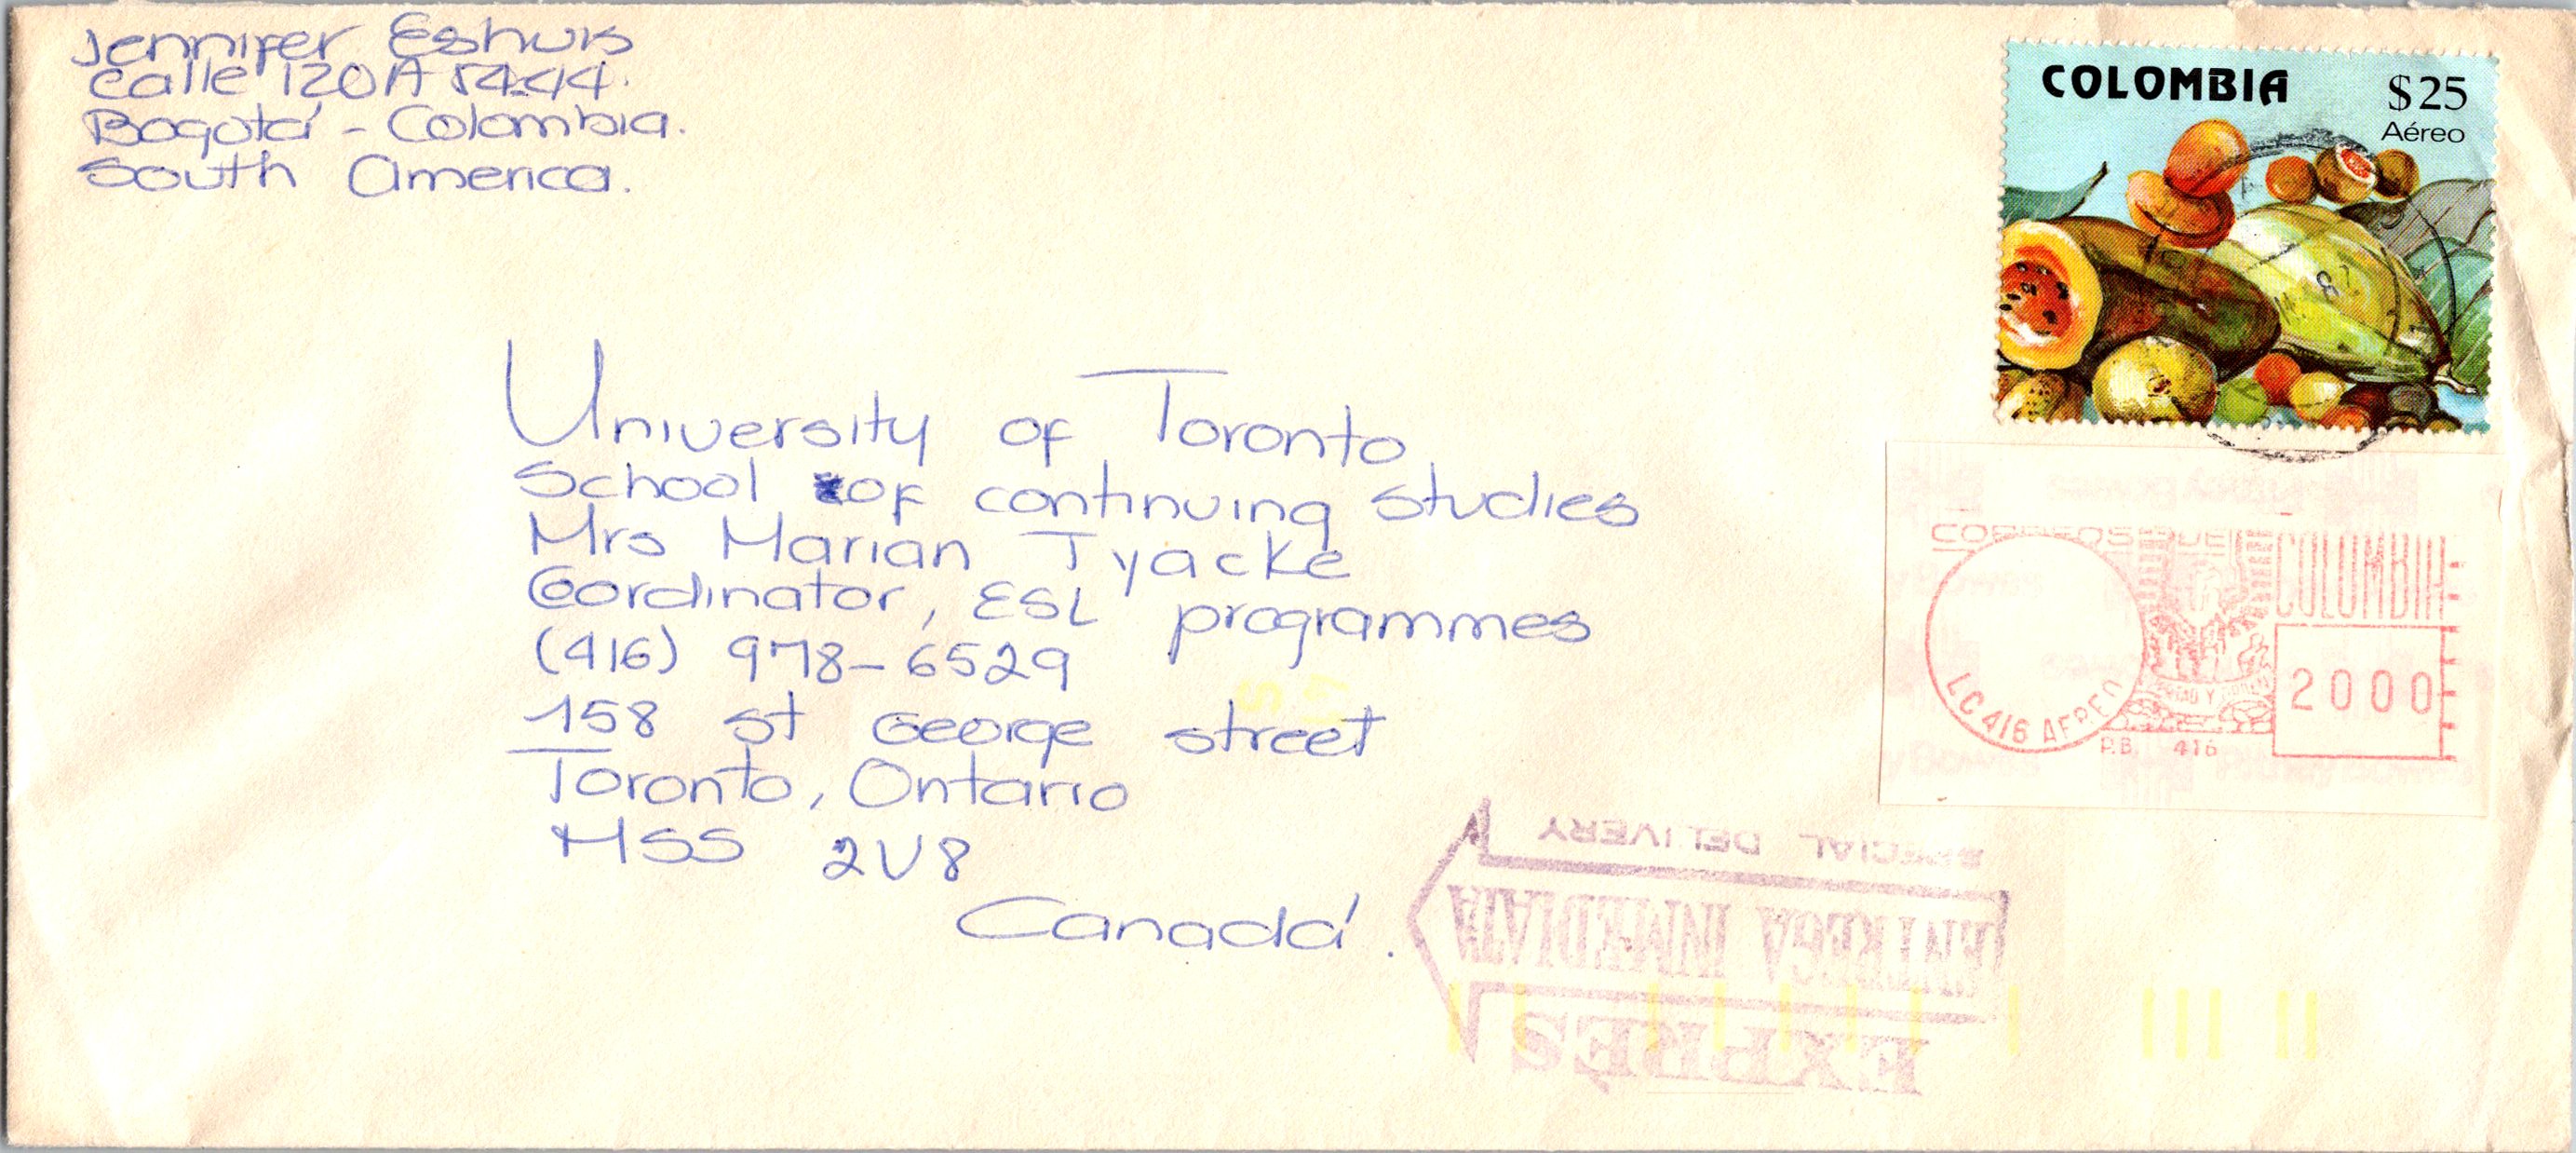 Jennifer Eshuis
Calle 120A 54-44.
Bogotá - Colombia.
South America.
COLOMBIA
$25
Aéreo
University of Toronto
School of continuing studies
Mrs Marian Tyacke
Coordinator, ESL programmes
(416) 978-6529
158 st George street
Toronto, Ontario
M5S 2V8
Canadá.
CORREOS DE COLOMBIA
LC 416 AEREO
P.B. 416
2000
SPECIAL DELIVERY
ENTREGA INMEDIATA
EXPRÉS